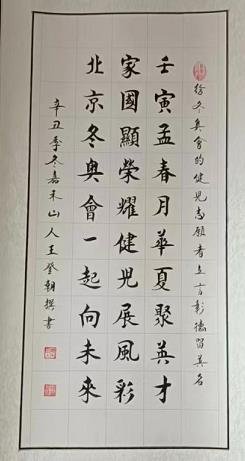 給冬奧會的健兒志願者立言彰德留美名
壬寅孟春月華夏聚英才
家國顯榮耀健兒展風彩
北京冬奧會一起向未來
辛丑季冬嘉禾山人王登朝撰書